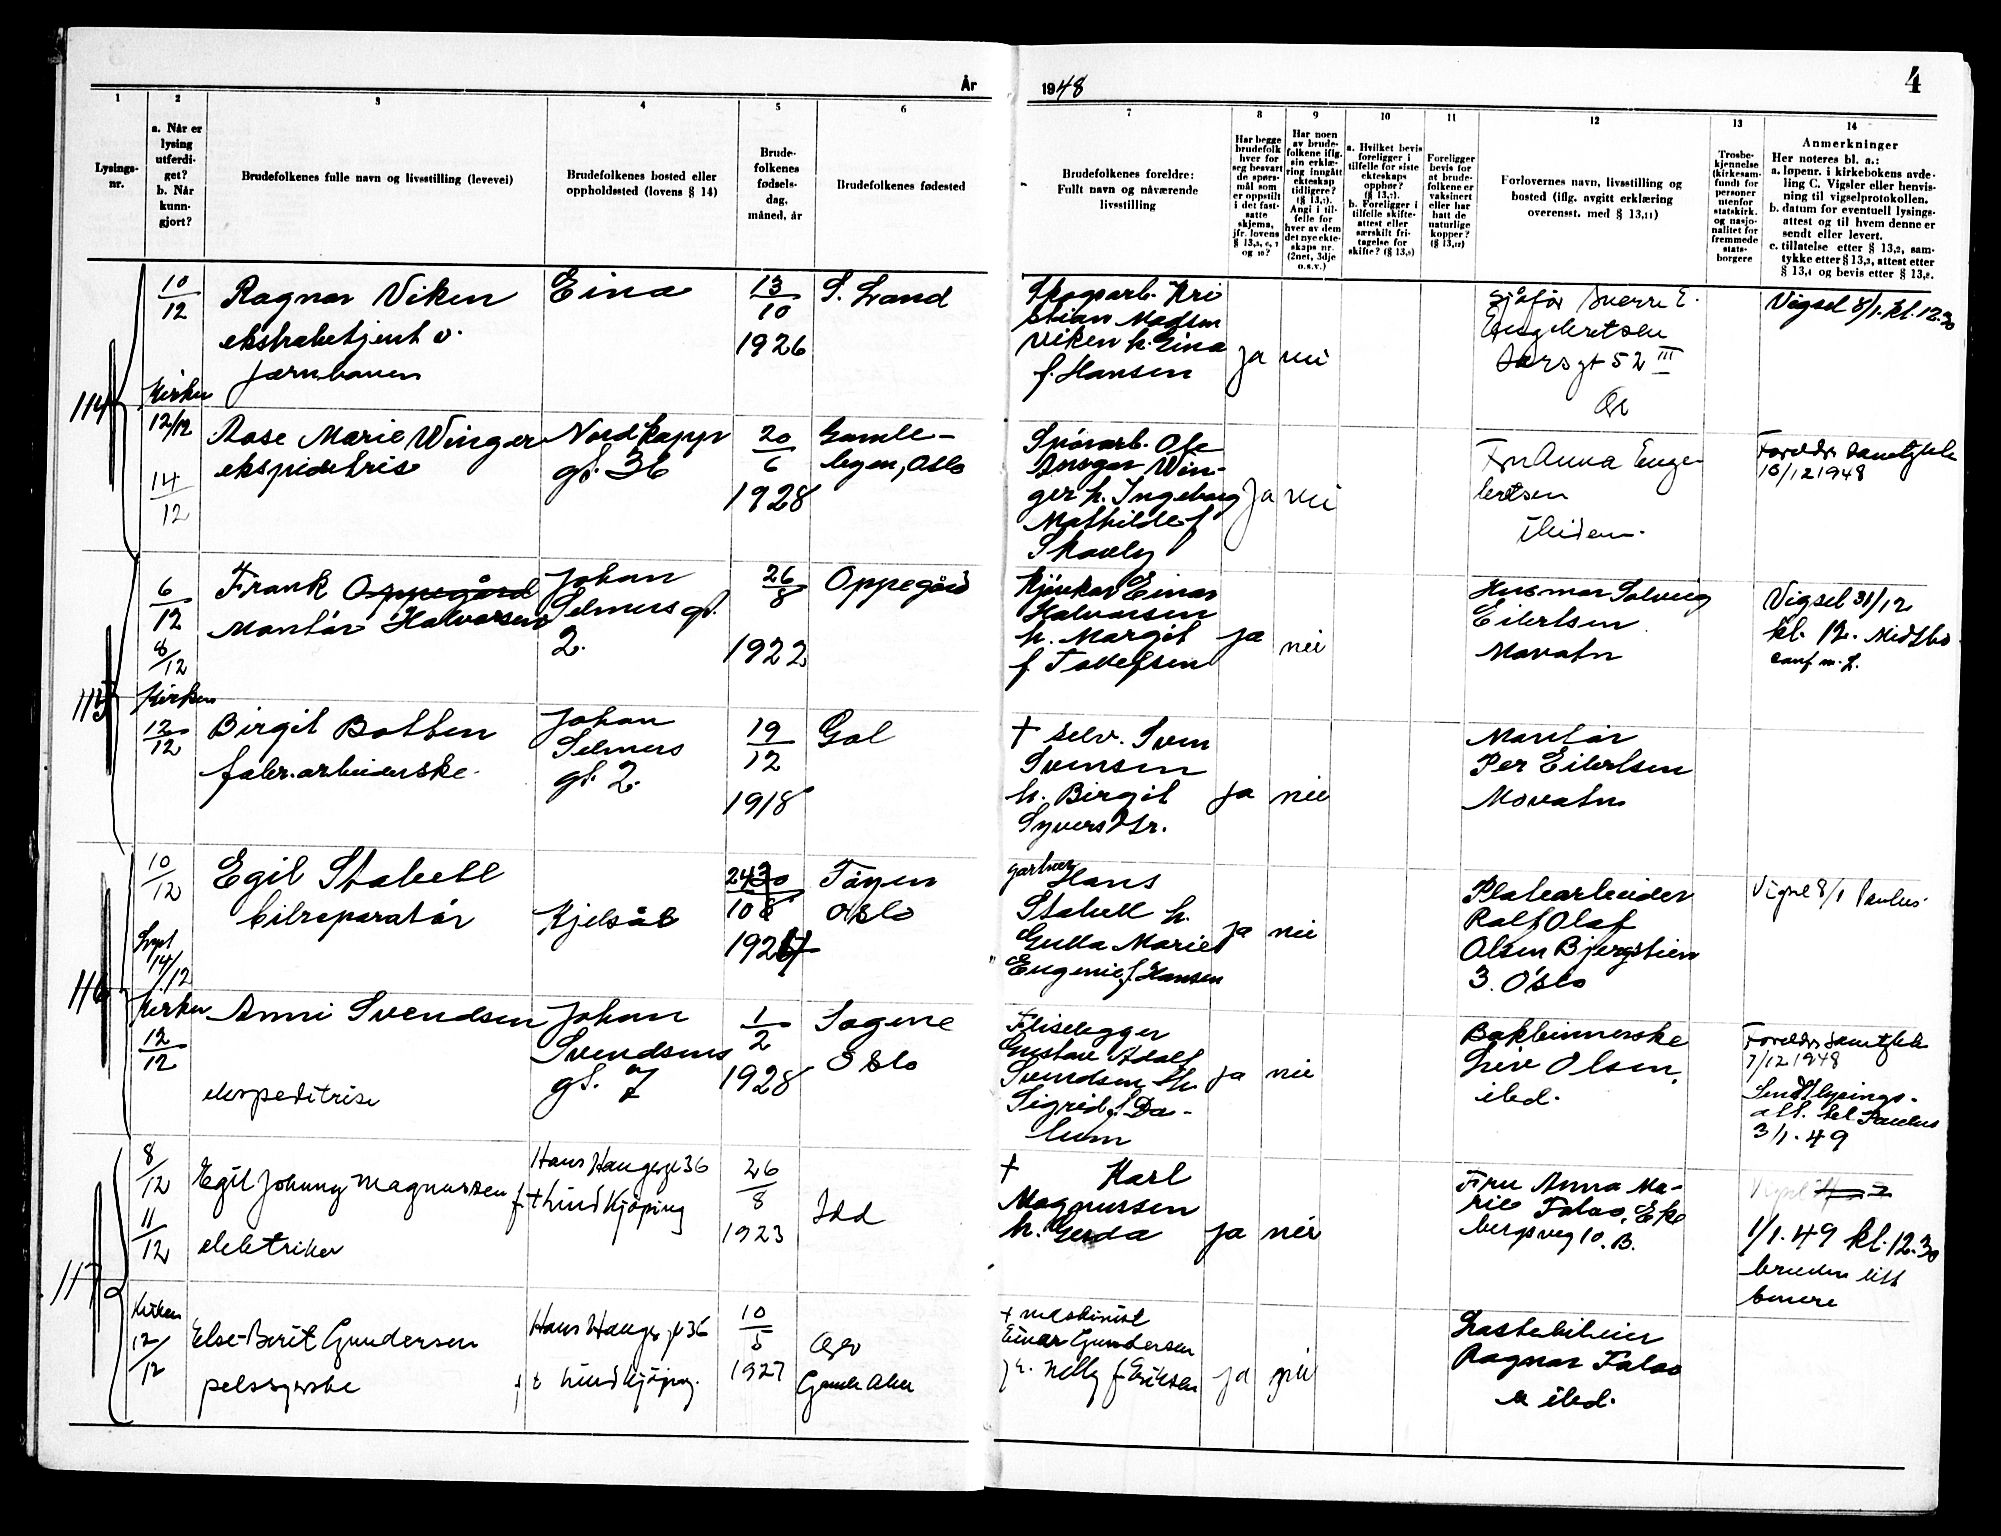 År
1948
4
1
2
3
4
5
6
7
8
9
10
11
12
13
14
Lysings-
nr.
a. Når er
lysing
utferdi-
get?
b. Når
kunn-
gjort?
Brudefolkenes fulle navn og livsstilling (levevei)
Brudefolkenes bosted eller
oppholdssted (lovens § 14)
Brude-
folkenes
fødsels-
dag,
måned, år
Brudefolkenes fødested
Brudefolkenes foreldre:
Fullt navn og nåværende
livsstilling
Har begge
brudefolk
hver for
seg besvart
de spørs-
mål som
er oppstilt
i det fast-
satte
skjema,
jfr. lovens
§ 13,5, 6, 7
og 10?
Har noen
av brude-
folkene iflg.
sin erklæ-
ring inngått
ekteskap
tidligere?
(§ 13,7).
Angi i til-
felle for
hver av dem
det nye ekte-
skaps nr.
(2net, 3dje
o.s.v.)
a. Hvilket bevis
foreligger i
tilfelle for siste
ekteskaps
opphør?
(§ 13,7).
b. Foreligger i
tilfelle skifte-
attest eller
særskilt fri-
tagelse for
skifte? (§ 13,8)
Foreligger
bevis for
at brude-
folkene er
vaksinert
eller har
hatt de
naturlige
kopper?
(§ 13,12)
Forlovernes navn, livsstilling og
bosted (iflg. avgitt erklæring
overensst. med § 13,11)
Trosbe-
kjennelse
(kirkesam-
fund) for
personer
utenfor
statskirk.
og nasjo-
nalitet for
fremmede
stats-
borgere
Anmerkninger
Her noteres bl. a.:
a. løpenr. i kirkebokens avde-
ling C. Vigsler eller henvis-
ning til vigselprotokollen.
b. datum for eventuell lysings-
attest og til hvem denne er
sendt eller levert.
c. tillatelse etter § 13,2, sam-
tykke etter § 13,3, attest etter
§ 13,4 og bevis etter § 13,6.
114
10/12
Kirken
12/12
14/12
Ragnar Viken
ekstrabetjent v.
jernbanen
Eina
13/10
1926
S. Land
Skogsarb. Kri
stian Madsen
Viken h. Eina
f. Hansen
ja
nei
Sjåfør Sverre E.
Engebretsen
Sarsgt 52 III
Vigsel 8/1. kl. 12.30
Aase Marie Winger
ekspiditrise
Nordkapp
gt. 36
20/6
1928
Gamle-
byen, Oslo
Spörarb. Ole
Ansgar Win-
ger h. Ingeborg
Mathilde f
Skauly
ja
nei
Fru Anna Enge
bretsen
Foreldr samtykke
10/12 1948
115
6/12
8/12
Kirken
12/12
Frank Oppegård
Montør Halvorsen
Johan
Selmers gt.
2.
26/8
1922
Oppegård
Kjørekar Einar
Halvorsen
h. Margit
f Tollefsen
ja
nei
Husmor Solveig
Eilertsen
Movatn
Vigsel 31/12
kl. 12. Midtbo
Birgit Botten
fabr.arbeiderske
Johan
Selmers
gt. 2.
19/12
1918
Gol
† selv. Sven
Svensen
h. Birgit
Syversdtr.
ja
nei
Montør
Per Eilertsen
Movatn
116
10/12
14/12
Kirken
12/12
Egil Stabell
bilreparatør
Kjelsås
24
10
192
Tøyen
Oslo
gartner
Hans
Stabell h.
Gulla Marie
Eugenie f. Hansen
ja
nei
Platearbeider
Ralf Olaf
Olsen Bjergstien
3. Oslo
Vigsel 8/1 Paulus
Anni Svendsen
ekspeditrise
Johan
Svendsens
gt. 7
1/2
1928
Sagene
Oslo
Fliselegger
Gustav Adolf
Svendsen h
Sigrid f. Da-
lum
ja
nei
Bokbinnerske
Liv Olsen,
ibd.
Foreldr samtykke
7/12 1948
Sendt lysings-
att. til Paulus
3/1. 49
117
8/12
11/12
Kirken
12/12
Egil Johnny Magnussen
elektriker
Hans Hauges gt 36
f + Lindkjöping
26/8
1923
Idd
† Karl
Magnussen
h. Gerda
ja
nei
Fru Anna Ma-
rie Falao, Eke
bergsveg 10. B.
Vigsel
1/1. 49 kl. 12.30
bruden litt
senere
Else-Berit Gundersen
pelssyerske
Hans Hauges gt 36
Lindkjöping.
10/5
1927
Gamle Aker
† maskinist
Einar Gundersen
h. Nelly f Eriksen
ja
nei
Lastebileier
Ragnar Falao
ibd.